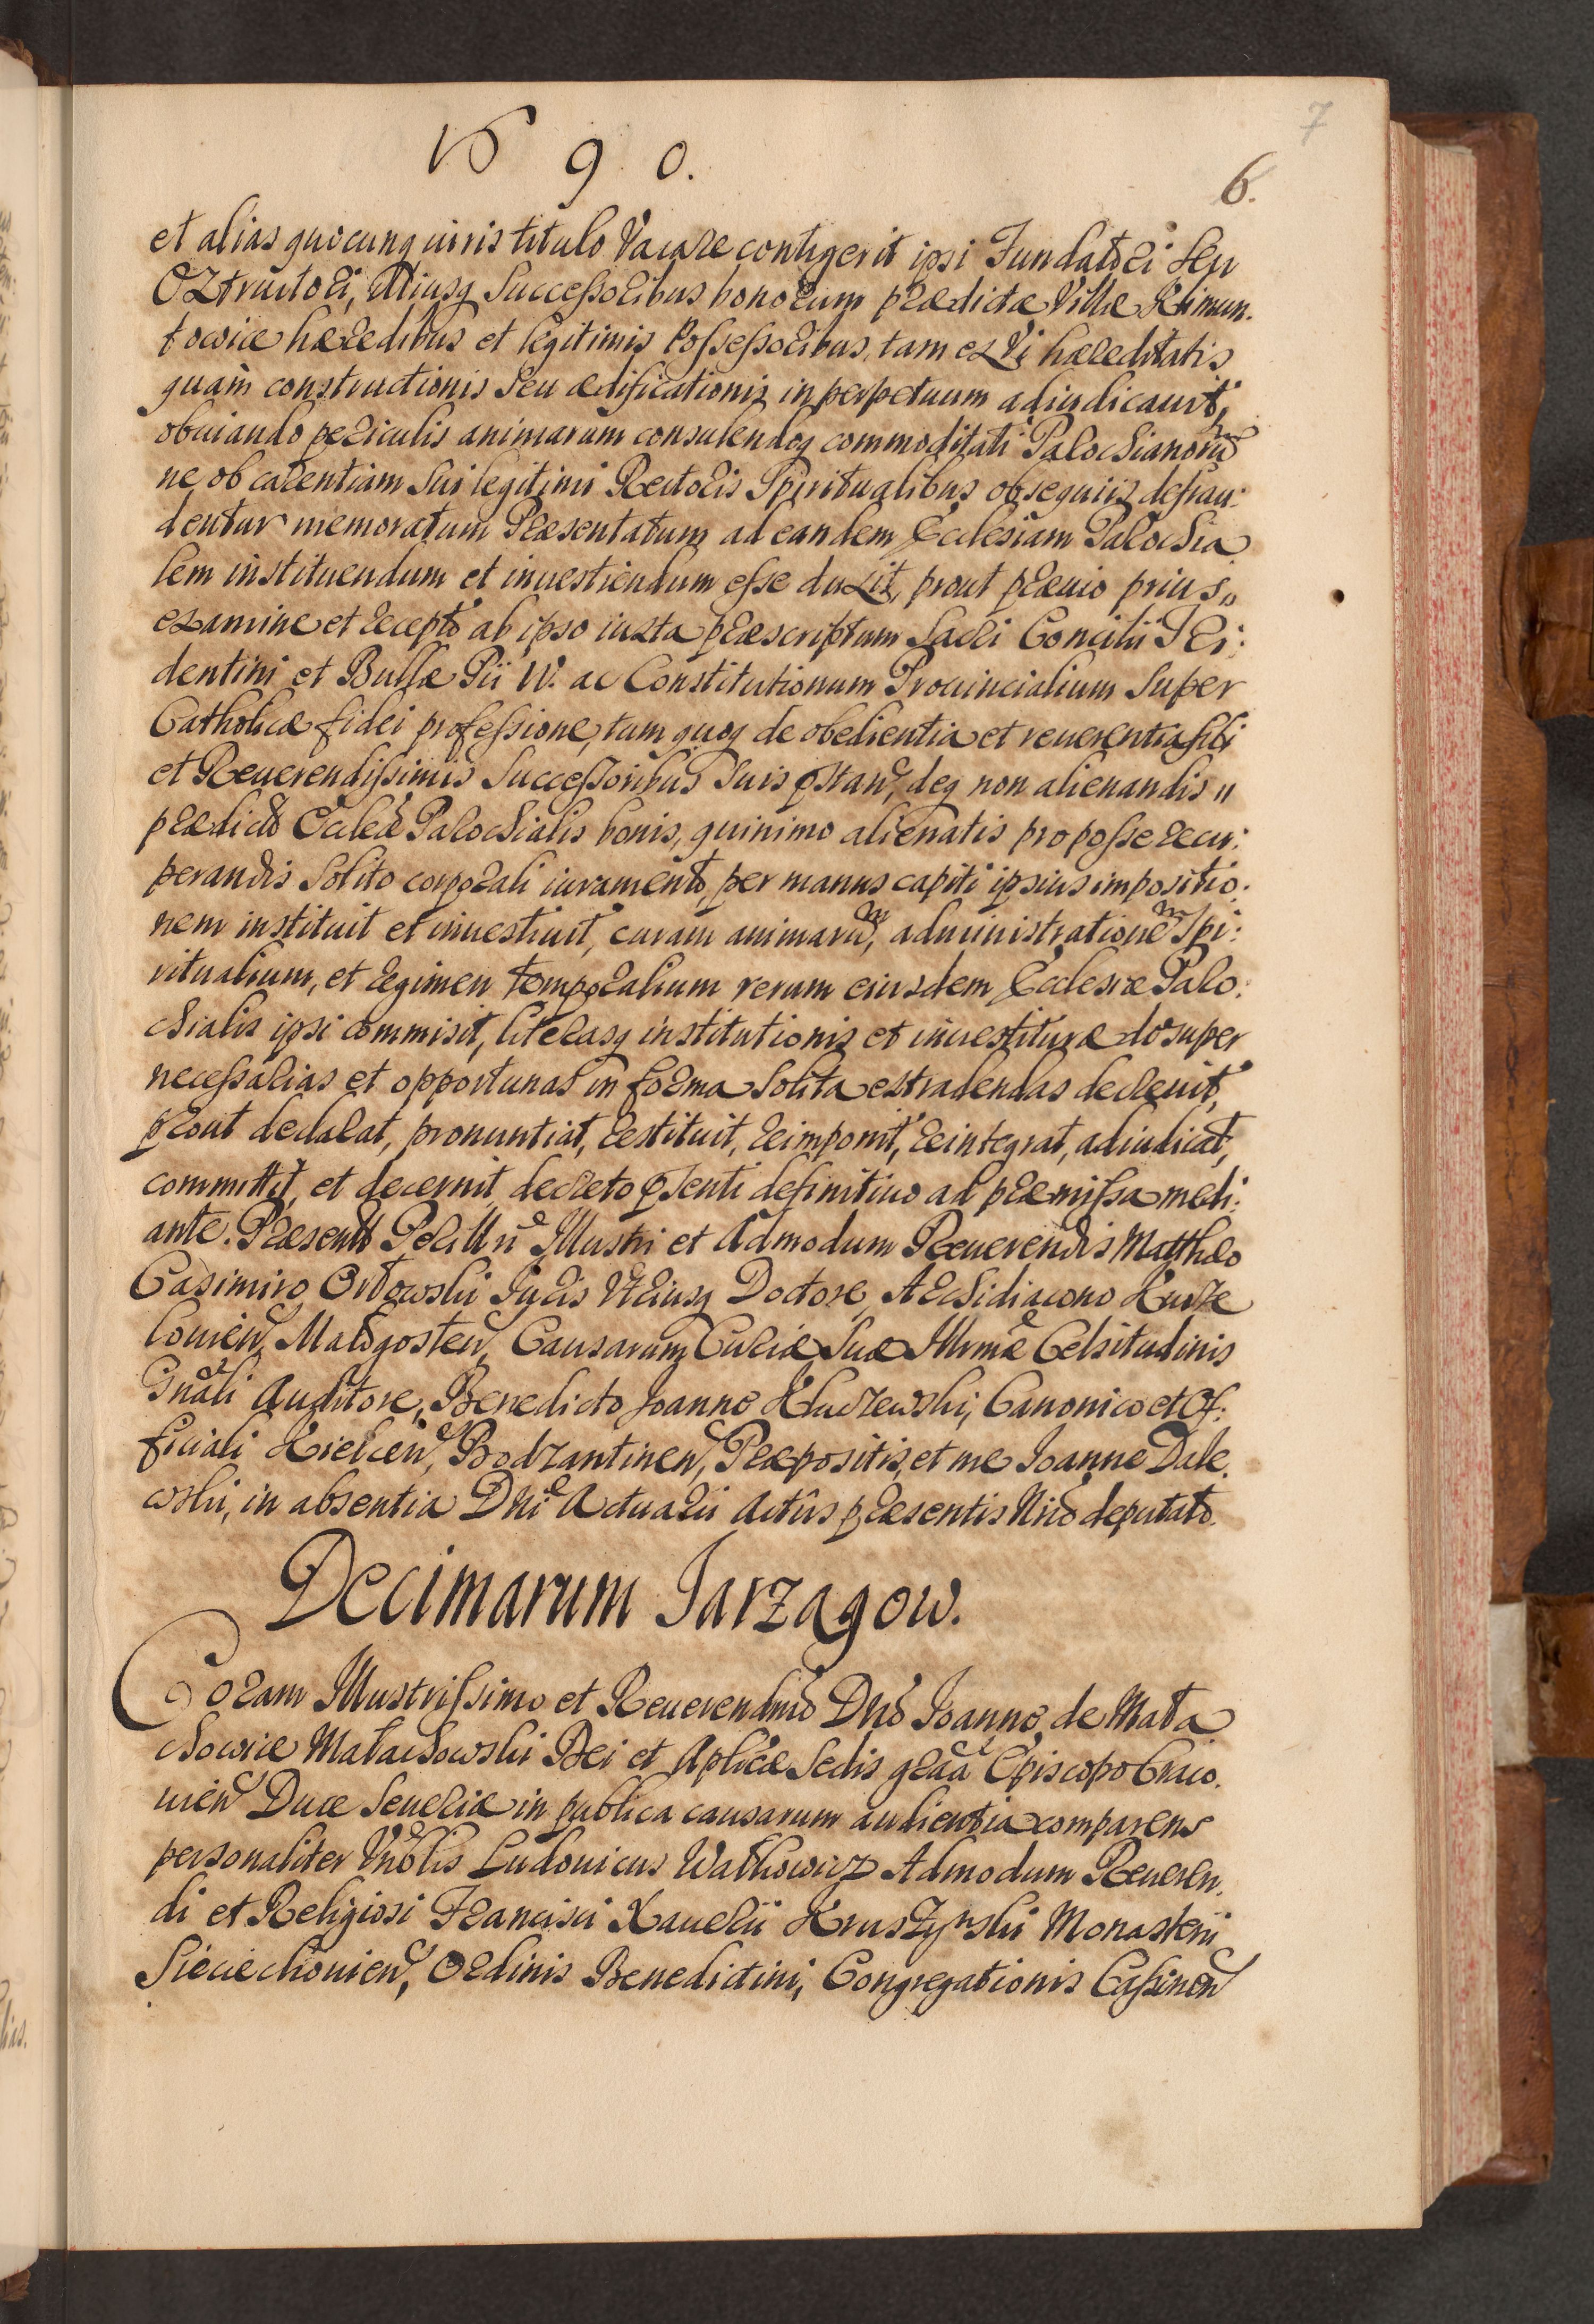 1690.
7
6.
et alias quocunq iuris titulo Vacare contigerit ipsi Fundatori seu
Extructori, Illiusq Successoribus bonorum prædictæ Villæ Klimun-
towice hæredibus et legitimis Possessoribus, tam ex Vi hæreditatis
quam constructionis seu ædificationis in perpetuum adiudicauit,
obuiando periculis animarum consulendoq commoditati Parochianorũ
ne ob carentiam sui legitimi Rectoris Spiritualibus obsequiis defrau:
dentur memoratum Præsentatum ad eandem Ecclesiam Parochia
lem instituendum et inuestiendum esse duxit, prout præuio prius„
examine et recepto ab ipso iuxta præscriptum Sacri Concilii Tri:
dentini et Bullæ Pii IV. ac Constitutionum Prouincialium super
Catholicæ fidei professione, tum quoq de obedientia et reuerentia sibi
et Reuerendissimis Successoribus suis pstand, deq non alienandis „
prædictæ Eccleæ Parochialis bonis, quinimo alienatis pro posse recu:
perandis solito corporali iuramento, per manus capiti ipsius impositio:
nem instituit et inuestiuit, curam animarũ, administrationẽ Spi:
ritualium, et regimen temporalium rerum eiusdem Ecclesiæ Paro:
chialis ipsi commisit, literasq institutionis et inuestituræ desuper
necessarias et opportunas in forma solita extradendas decreuit,
prout declarat, pronuntiat, restituit, reimponit, reintegrat, adiudicat,
committit, et decernit decreto psenti definitiuo ad præmissa medi:
ante. Præsentt Perill̃ri Illustri et Admodum Reuerendis Matthæo
Casimiro Orłowski Iuris Vtriusq Doctore, Archidiacono Kurze
louień, Małogosteń, Causarum Curiæ Suæ Illrmæ Celsitudinis
Gnali Auditore, Benedicto Joanne Kluczewski, Canonico et Of:
ficiali Kielceń, Bodzantineń, Præpositis, et me Joanne Dale.
wski, in absentia Dni Actuarii Actûs præsentis Nrio deputato.
Decimarum Jarzagow.
Coram Illustrissimo et Reuerendmo Dno Joanne de Mała
chowice Małachowski Dei et Aplicæ Sedis graa Episcopo Craco.
uień Duce Seueriæ in publica causarum audientia comparens
personaliter Vnblis Ludouicus Wałkowicz Admodum Reueren.
di et Religiosi Francisci Xauerii Kruszyński Monasterii
Sieciechouień, Ordinis Benedictini, Congregationis Cassineń